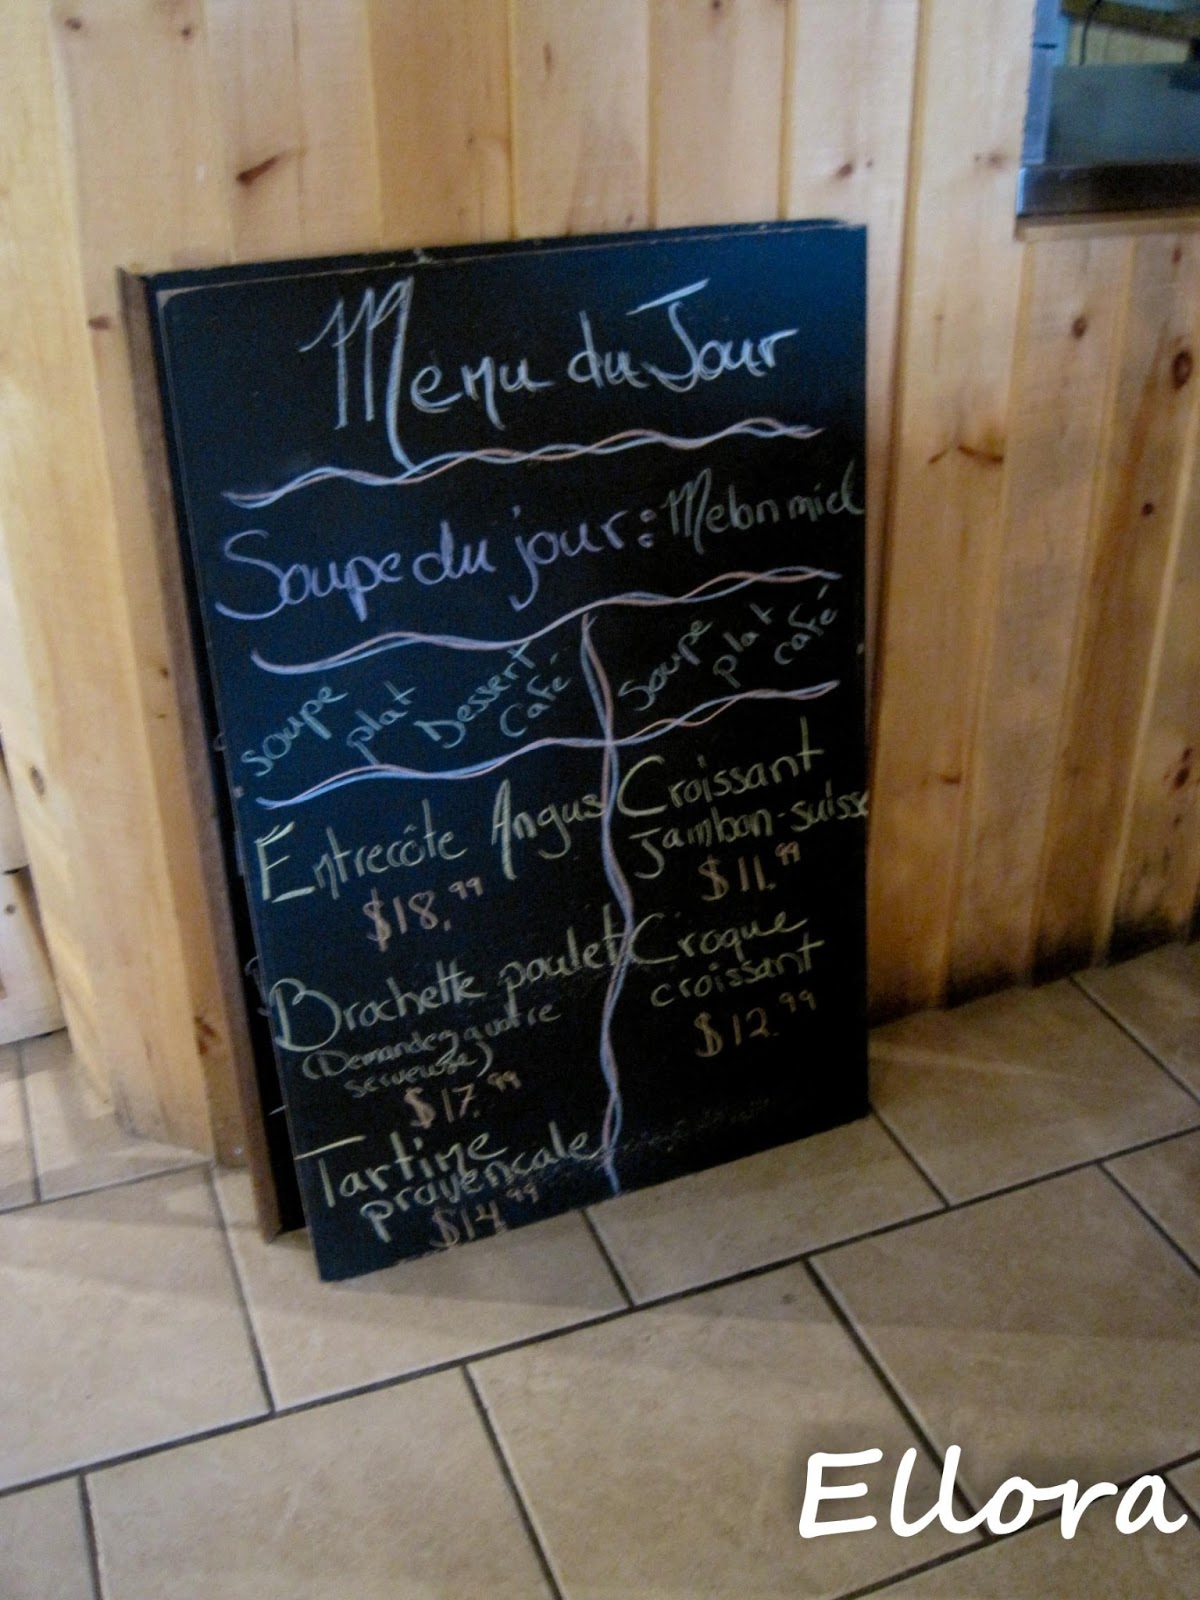 Menu du Jour
Soupe du jour: Melon miel
Soupe plat Dessert Café
Entrecôte Angus
$18.99
Brochette poulet
(Demandez a votre
serveuse)
$17.99
Tartine
provencale
$14.99
Soupe plat café
Croissant
Jambon-suisse
$11.99
Croque
croissant
$12.99
Ellora